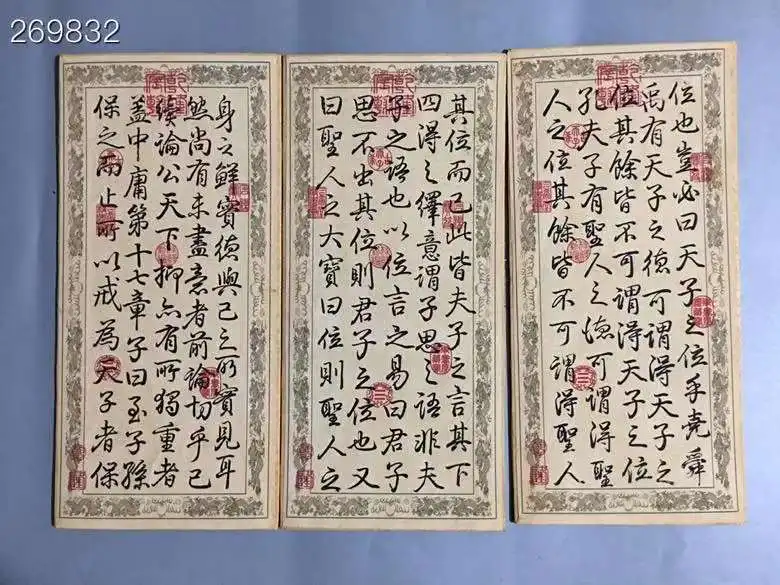 269832
身之鮮實德與己之所實見耳
然尚有未盡意者前論切乎己
續論公天下抑亦有所獨重者
蓋中庸第十七章子曰至子孫
保之而止所以戒為天子者保
其位而已此皆夫子之言其下
四得之繹意謂子思之語非夫
子之語也以位言之易曰君子
思不出其位則君子之位也又
曰聖人之大寶曰位則聖人之
位也豈必曰天子之位乎堯舜
禹有天子之德可謂得天子之
位其餘皆不可謂得天子之位
孔夫子有聖人之德可謂得聖
人之位其餘皆不可謂得聖人